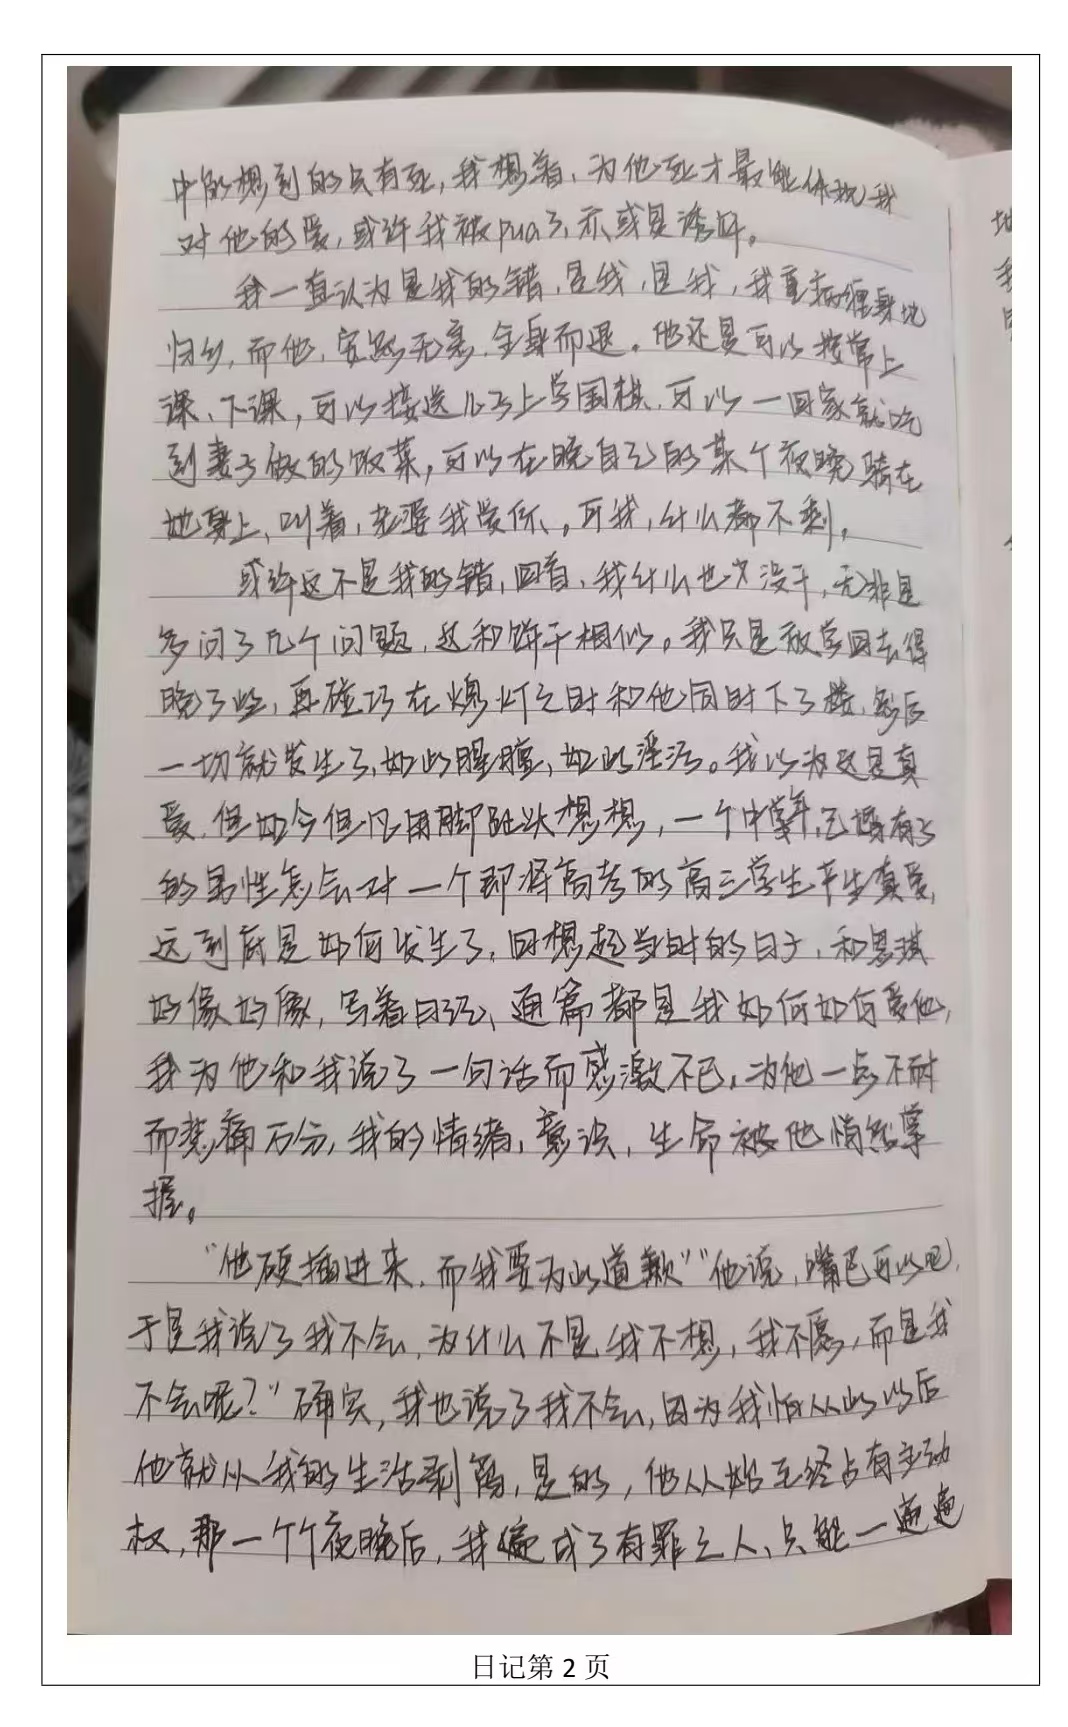 中能想到的只有死,我想着,为他死才最能体现我
对他的爱,或许我被pua了,亦或是诱奸。
我一直认为是我的错,是我,是我,我重病缠身地
归乡,而他,安然无恙,全身而退。他还是可以按常上
课、下课,可以接送儿子上学围棋,可以一回家就吃
到妻子做的饭菜,可以在晚自己的某个夜晚骑在
她身上,叫着,老婆我爱你、。可我,什么都不剩。
或许这不是我的错,回看,我什么也没干,无非是
多问了几个问题,这和饼干相似。我只是放学回去得
晚了些,再碰巧在熄灯之时和他同时下了楼,然后
一切就发生了,如此腥膻,如此淫污。我以为这是真
爱,但如今但凡用脚趾头想想,一个中年,已婚有子
的男性怎会对一个即将高考的高三学生产生真爱,
这到底是如何发生了,回想起当时的日子,和思琪
好像好像,写着日记、通篇都是我如何如何爱他,
我为他和我说了一句话而感激不已,为他一点不耐
而悲痛万分,我的情绪,意识,生命被他悄然掌
握。
“他硬插进来,而我要为此道歉”“他说,嘴巴可以吧,
于是我说了我不会,为什么不是我不想,我不愿,而是我
不会呢?”确实,我也说了我不会,因为我怕从此以后
他就从我的生活剥离,是的,他从始至终占有主动
权,那一个个夜晚后,我便成了有罪之人、只能一遍遍
地
我
日记第 2 页